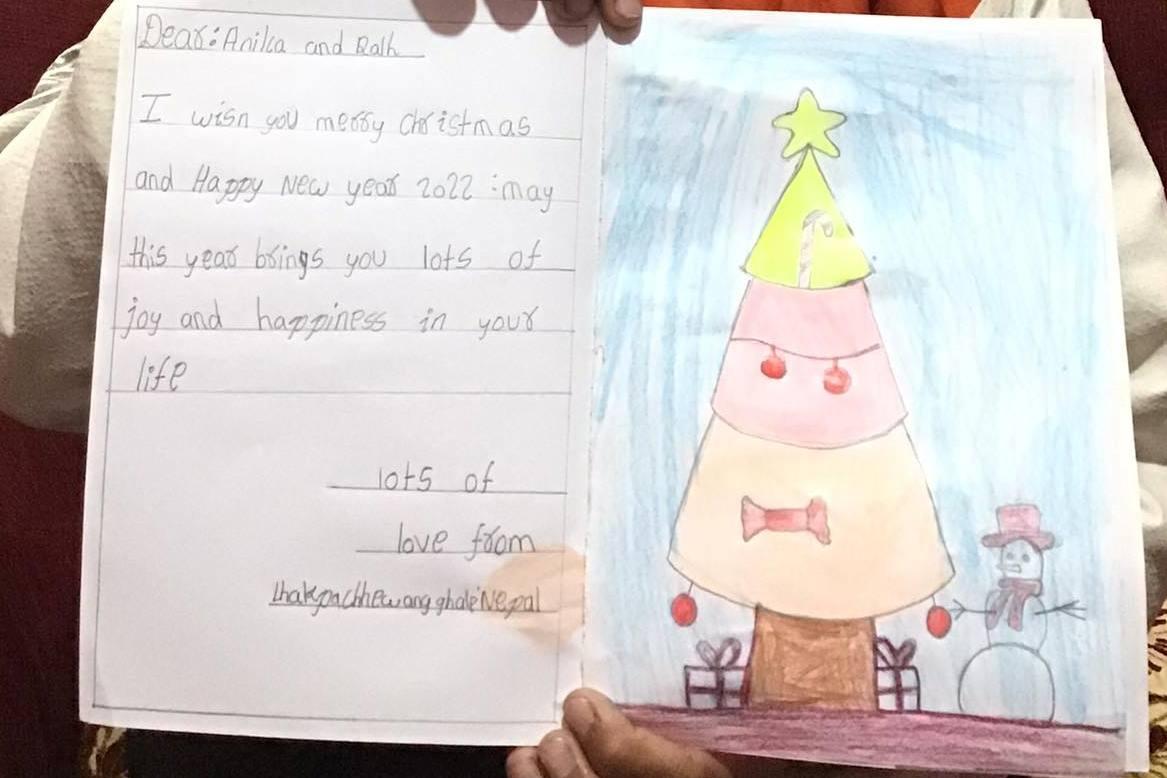 Dear: Anika and Ralh
I wish you merry christmas
and Happy New year 2022 : may
this year brings you lots of
joy and happiness in your
life
lots of
love from
lhakpachhewang ghale Nepal